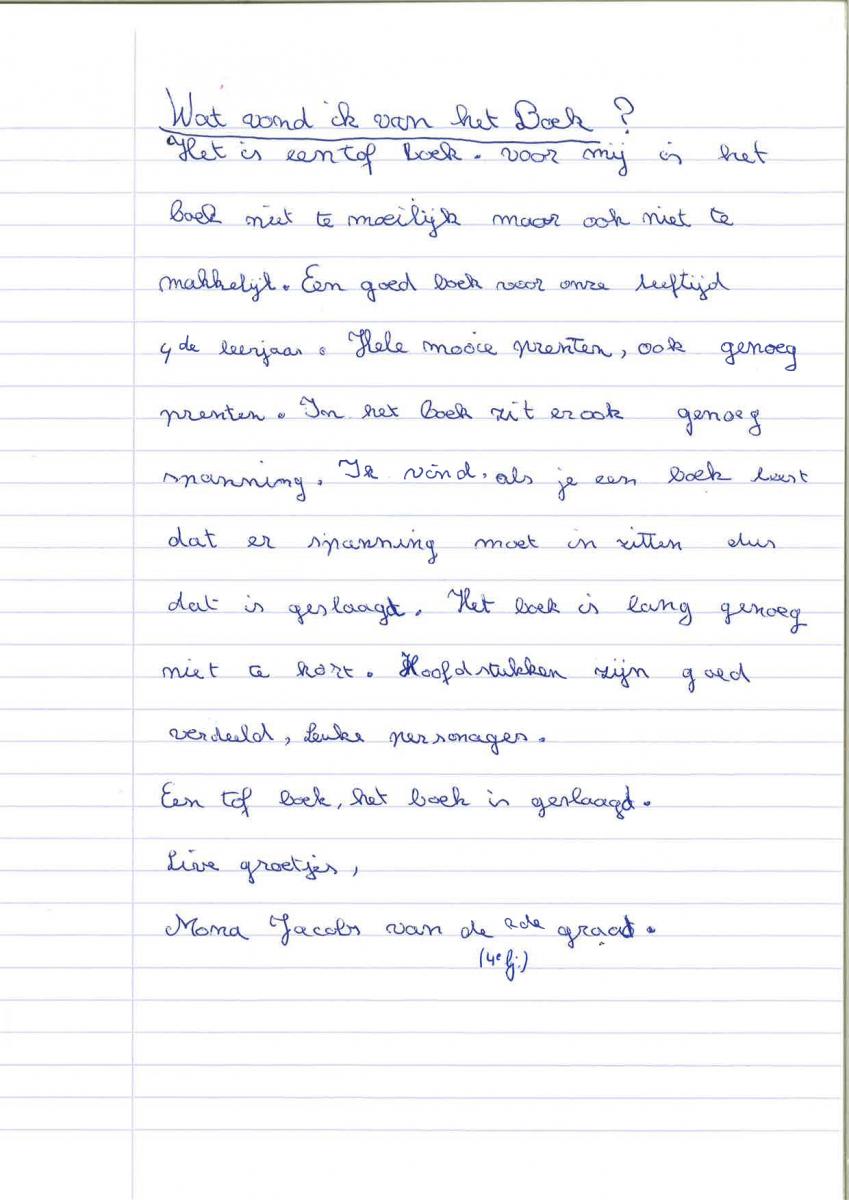 Wat vond ik van het Boek ?
Het is een tof boek. voor mij is het
boek niet te moeilijk maar ook niet te
makkelijk. Een goed boek voor onze leeftijd
4de leerjaar. Hele mooie prenten, ook genoeg
prenten. In het boek zit er ook genoeg
spanning. Ik vind, als je een boek leest
dat er spanning moet in zitten dus
dat is geslaagt. Het boek is lang genoeg
niet te kort. Hoofdstukken zijn goed
verdeeld, Leuke personages.
Een tof boek, het boek is geslaagd.
Live groetjes,
Mona Jacobs van de 2de graad.
(4e lj.)